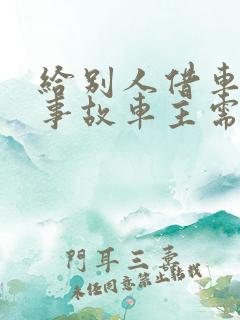 給别人借車
事故車主需
門耳三囊
未经同意禁止转载